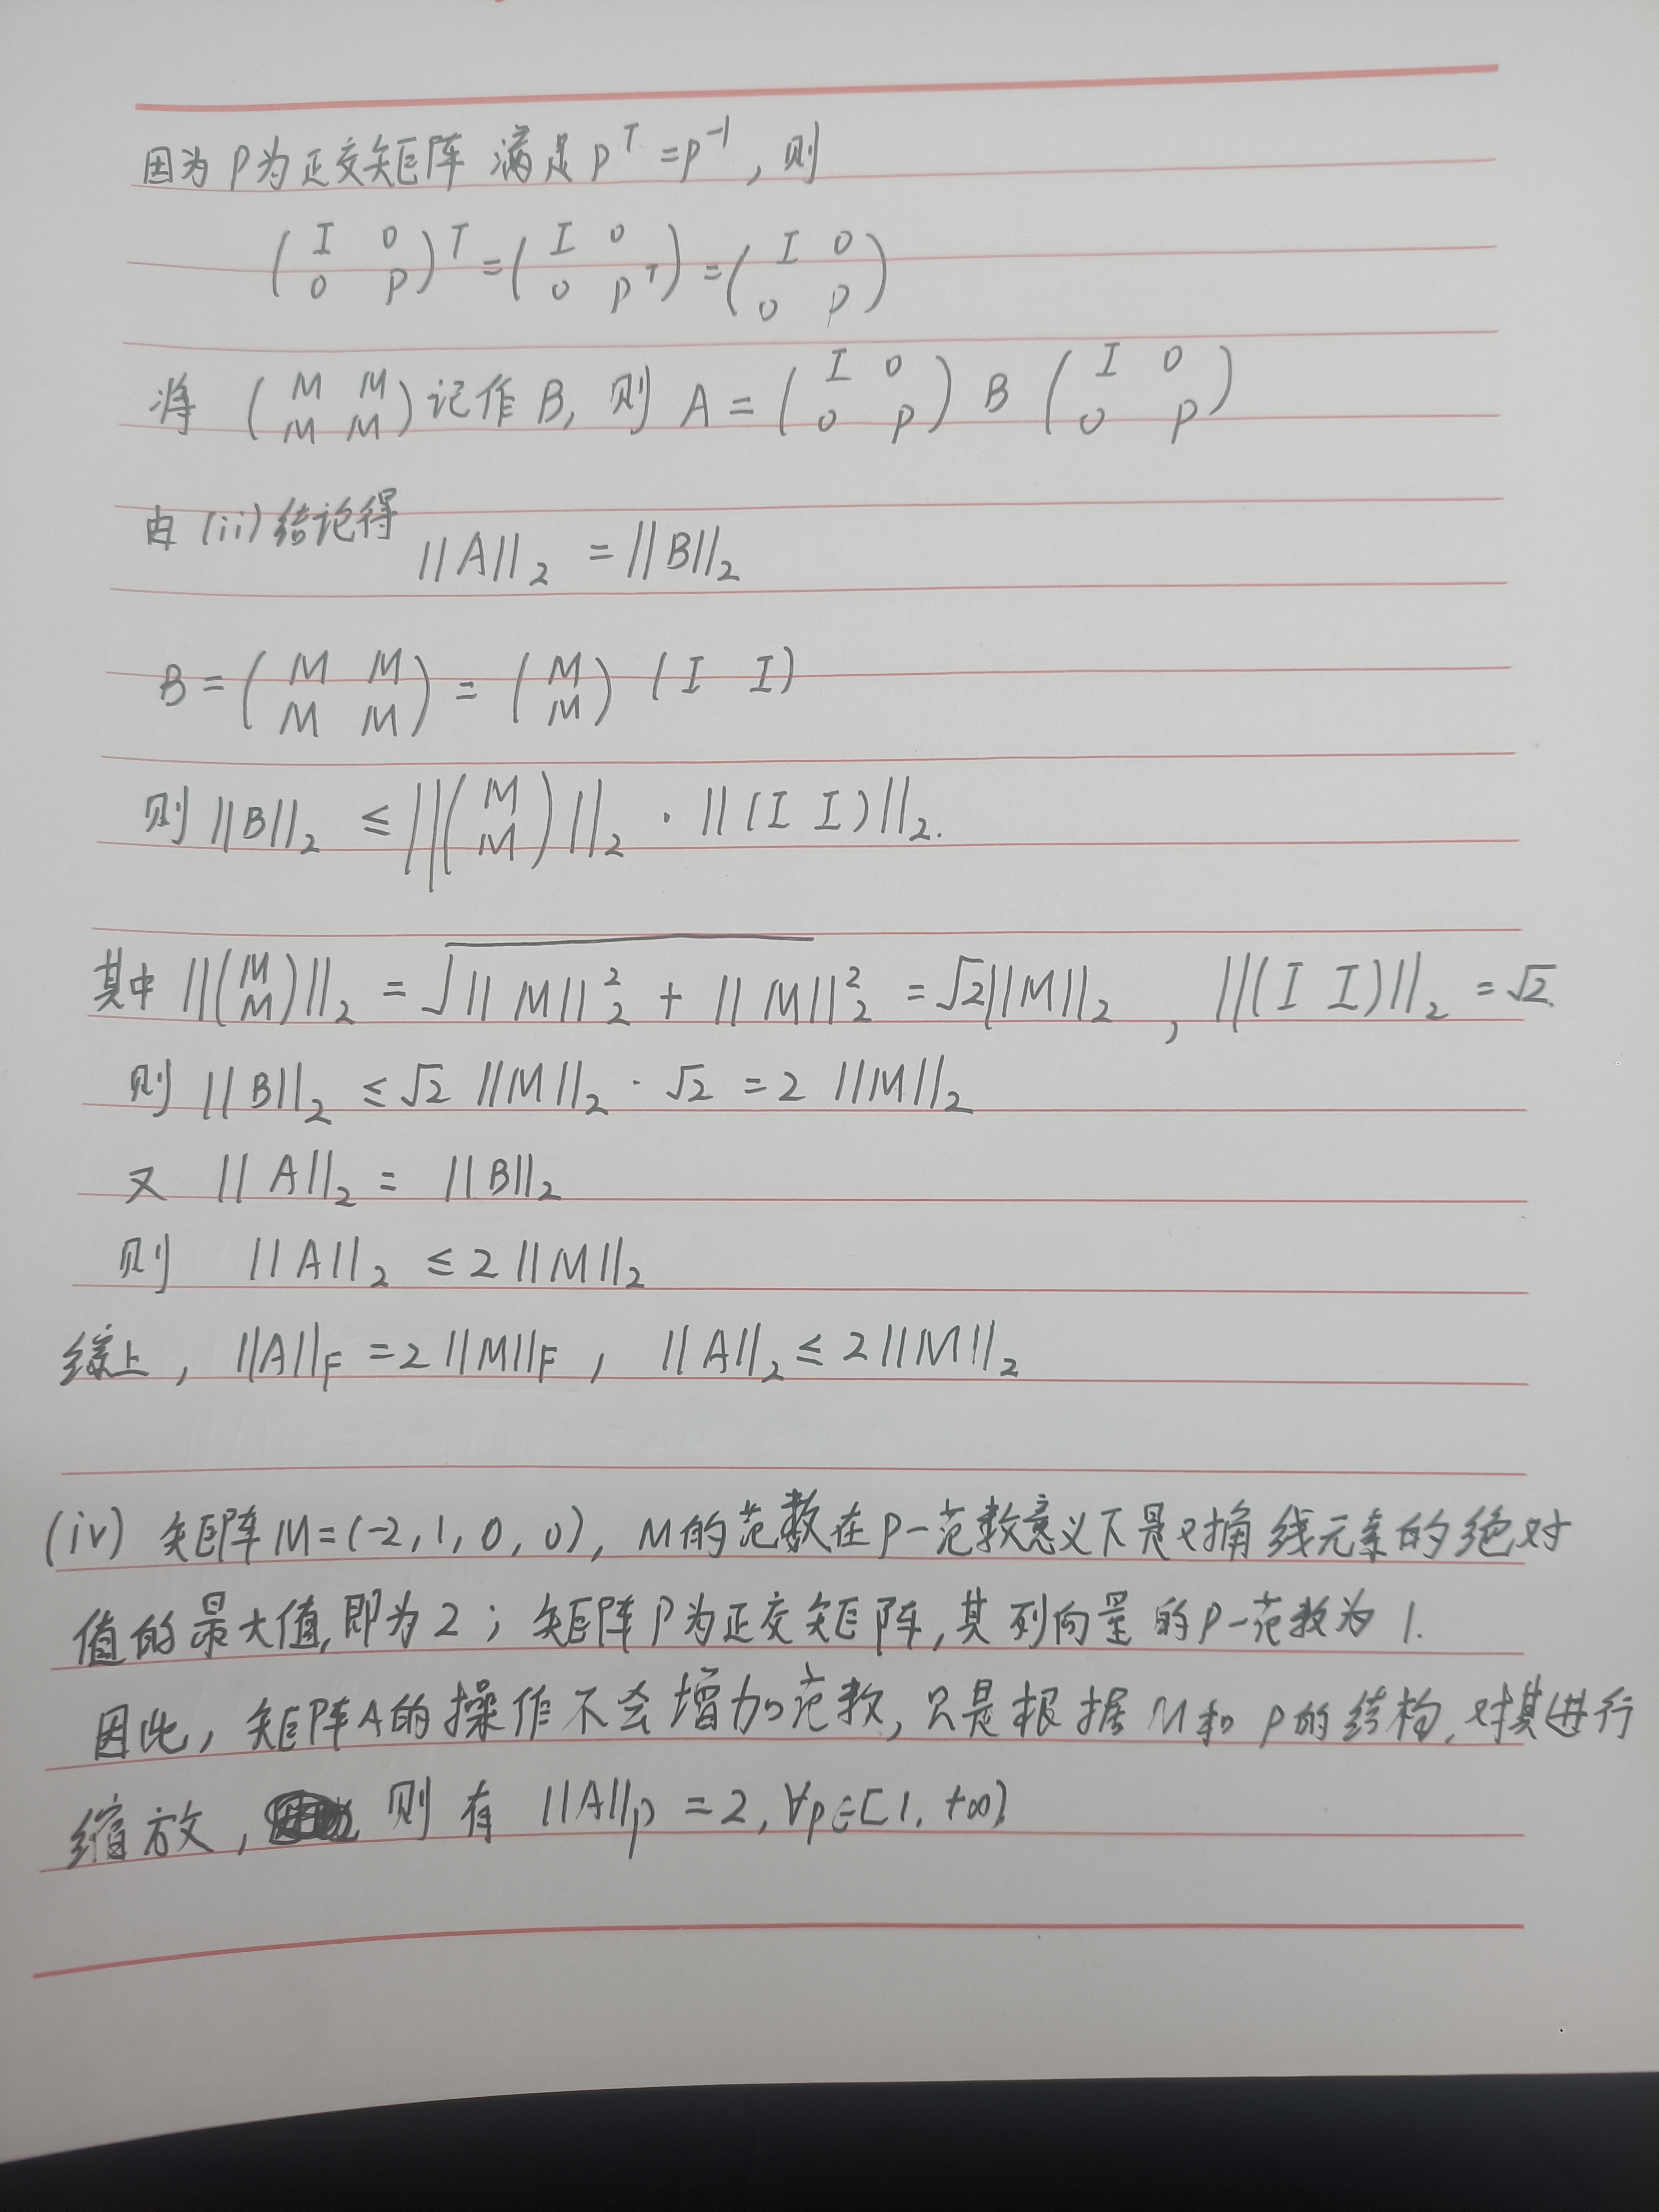 因为P为正交矩阵 满足 P^T = P^{-1}, 则
(I 0; 0 P)^T = (I 0; 0 P^T) = (I 0; 0 P)
将 (M M; M M) 记作 B, 则 A = (I 0; 0 P) B (I 0; 0 P)
由 (ii) 结论得 ||A||_2 = ||B||_2
B = (M M; M M) = (M; M) (I I)
则 ||B||_2 ≤ ||(M; M)||_2 · ||(I I)||_2.
其中 ||(M; M)||_2 = √(||M||_2^2 + ||M||_2^2) = √2||M||_2 , ||(I I)||_2 = √2.
则 ||B||_2 ≤ √2 ||M||_2 · √2 = 2 ||M||_2
又 ||A||_2 = ||B||_2
则 ||A||_2 ≤ 2||M||_2
综上, ||A||_F = 2||M||_F , ||A||_2 ≤ 2||M||_2
(iv) 矩阵M=(-2,1,0,0), M的范数在P-范数意义下是对角线元素的绝对
值的最大值,即为2; 矩阵P为正交矩阵,其列向量的P-范数为1.
因此, 矩阵A的操作不会增加范数, 只是根据M和P的结构,对其进行
缩放, 则有 ||A||_p = 2, ∀p∈[1,+∞]